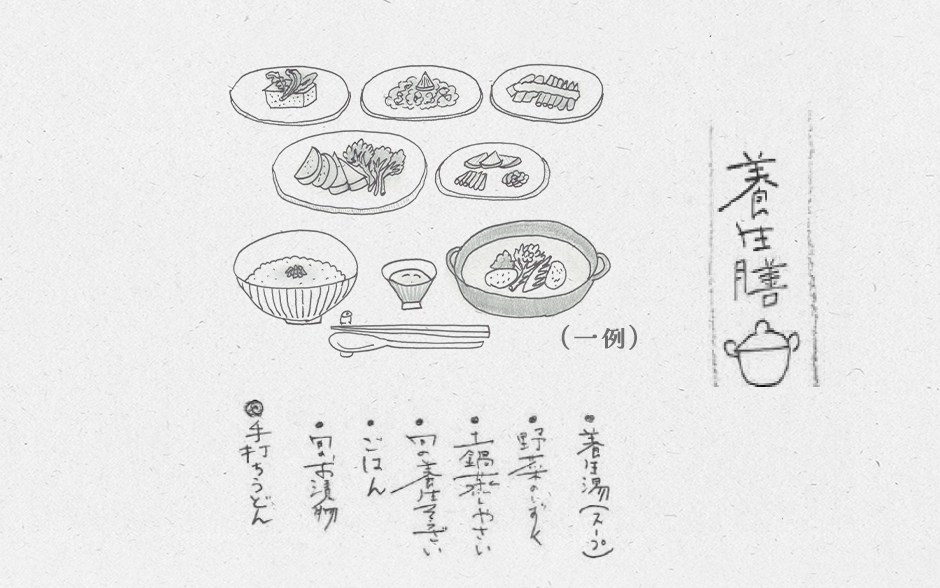 養生膳
(一例)
・養生湯(スープ)
・野菜のしずく
・土鍋蒸しやさい
・旬の養生そうざい
・ごはん
・旬のお漬物
◎手打ちうどん